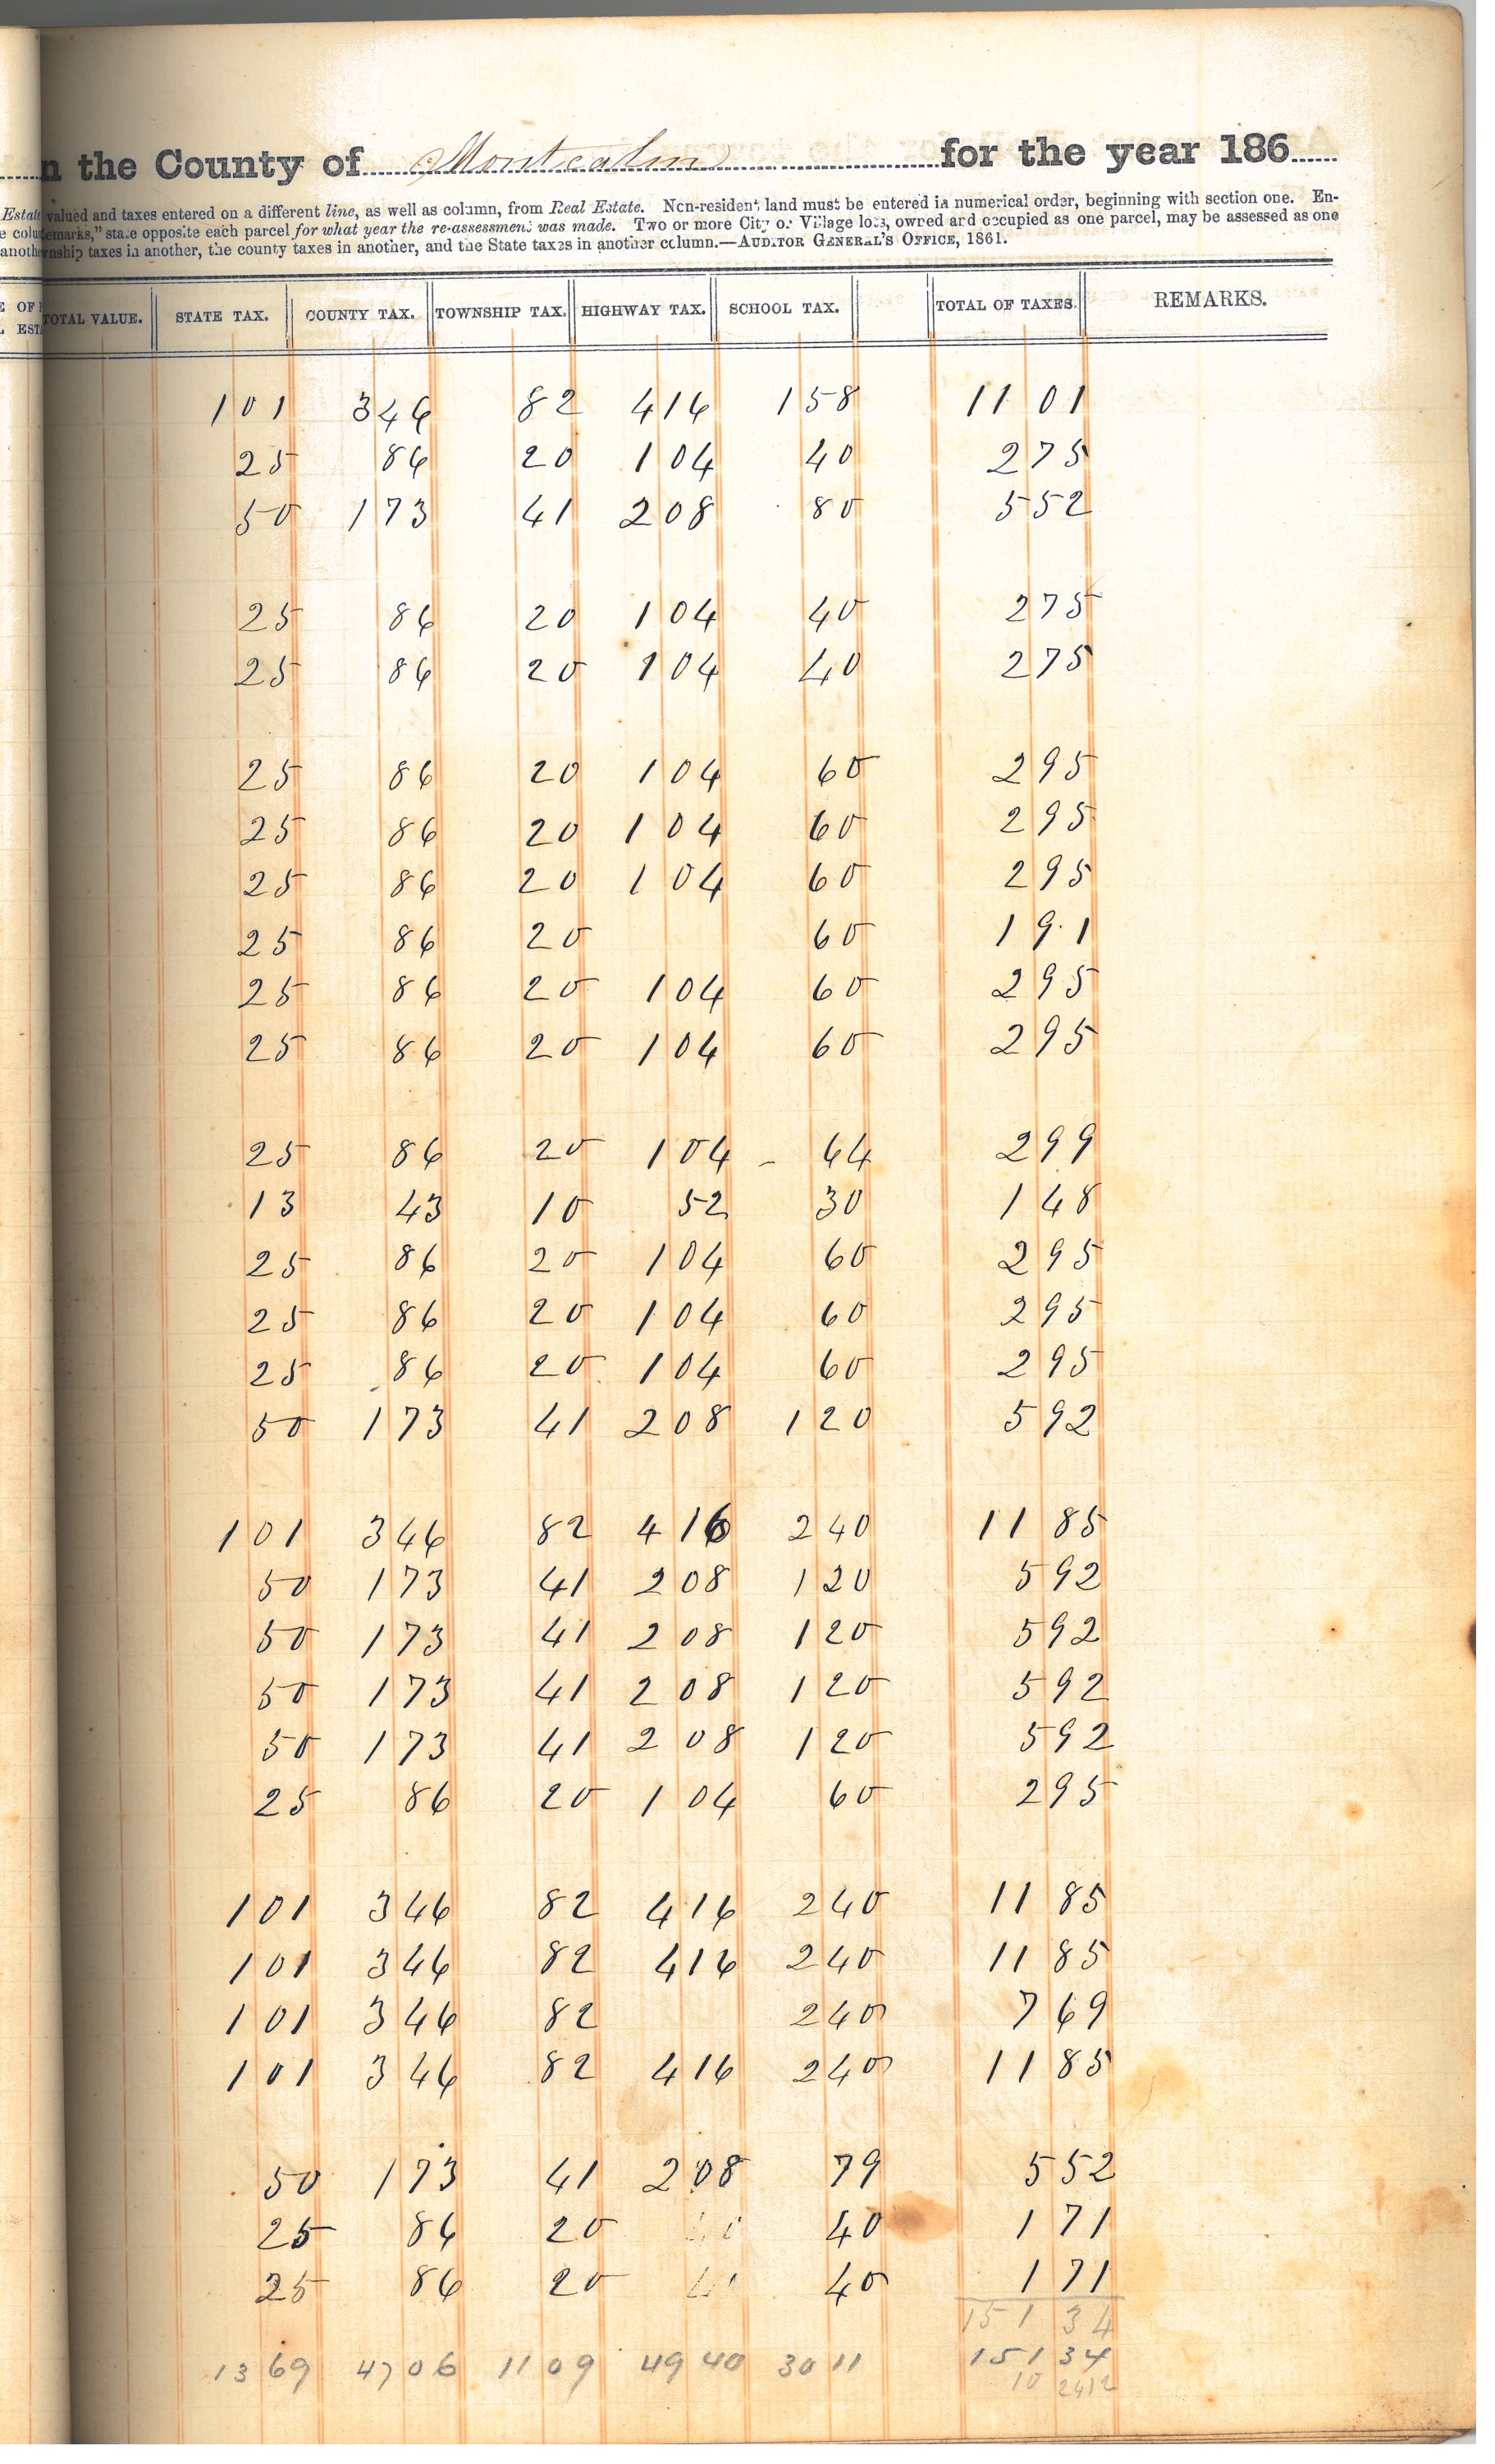 n the County of Montcalm for the year 186
Estate valued and taxes entered on a different line, as well as column, from Real Estate. Non-resident land must be entered in numerical order, beginning with section one. En-
e colu emarks," state opposite each parcel for what year the re-assessment was made. Two or more City or Village lots, owned and occupied as one parcel, may be assessed as one
anothe wnship taxes in another, the county taxes in another, and the State taxes in another column.—AUDITOR GENERAL'S OFFICE, 1861.
E OF TOTAL VALUE. STATE TAX. COUNTY TAX. TOWNSHIP TAX. HIGHWAY TAX. SCHOOL TAX. TOTAL OF TAXES. REMARKS.
L EST
1 01 3 46 82 4 16 1 58 11 01
25 86 20 1 04 40 2 75
50 1 73 41 2 08 80 5 52
25 86 20 1 04 40 2 75
25 86 20 1 04 40 2 75
25 86 20 1 04 60 2 95
25 86 20 1 04 60 2 95
25 86 20 1 04 60 2 95
25 86 20 60 1 91
25 86 20 1 04 60 2 95
25 86 20 1 04 60 2 95
25 86 20 1 04 64 2 99
13 43 10 52 30 1 48
25 86 20 1 04 60 2 95
25 86 20 1 04 60 2 95
25 86 20 1 04 60 2 95
50 1 73 41 2 08 1 20 5 92
1 01 3 46 82 4 16 2 40 11 85
50 1 73 41 2 08 1 20 5 92
50 1 73 41 2 08 1 20 5 92
50 1 73 41 2 08 1 20 5 92
50 1 73 41 2 08 1 20 5 92
25 86 20 1 04 60 2 95
1 01 3 46 82 4 16 2 40 11 85
1 01 3 46 82 4 16 2 40 11 85
1 01 3 46 82 2 40 7 69
1 01 3 46 82 4 16 2 40 11 85
50 1 73 41 2 08 79 5 52
25 86 20 40 1 71
25 86 20 40 1 71
151 34
13 69 47 06 11 09 49 40 30 11 151 34
10 2412